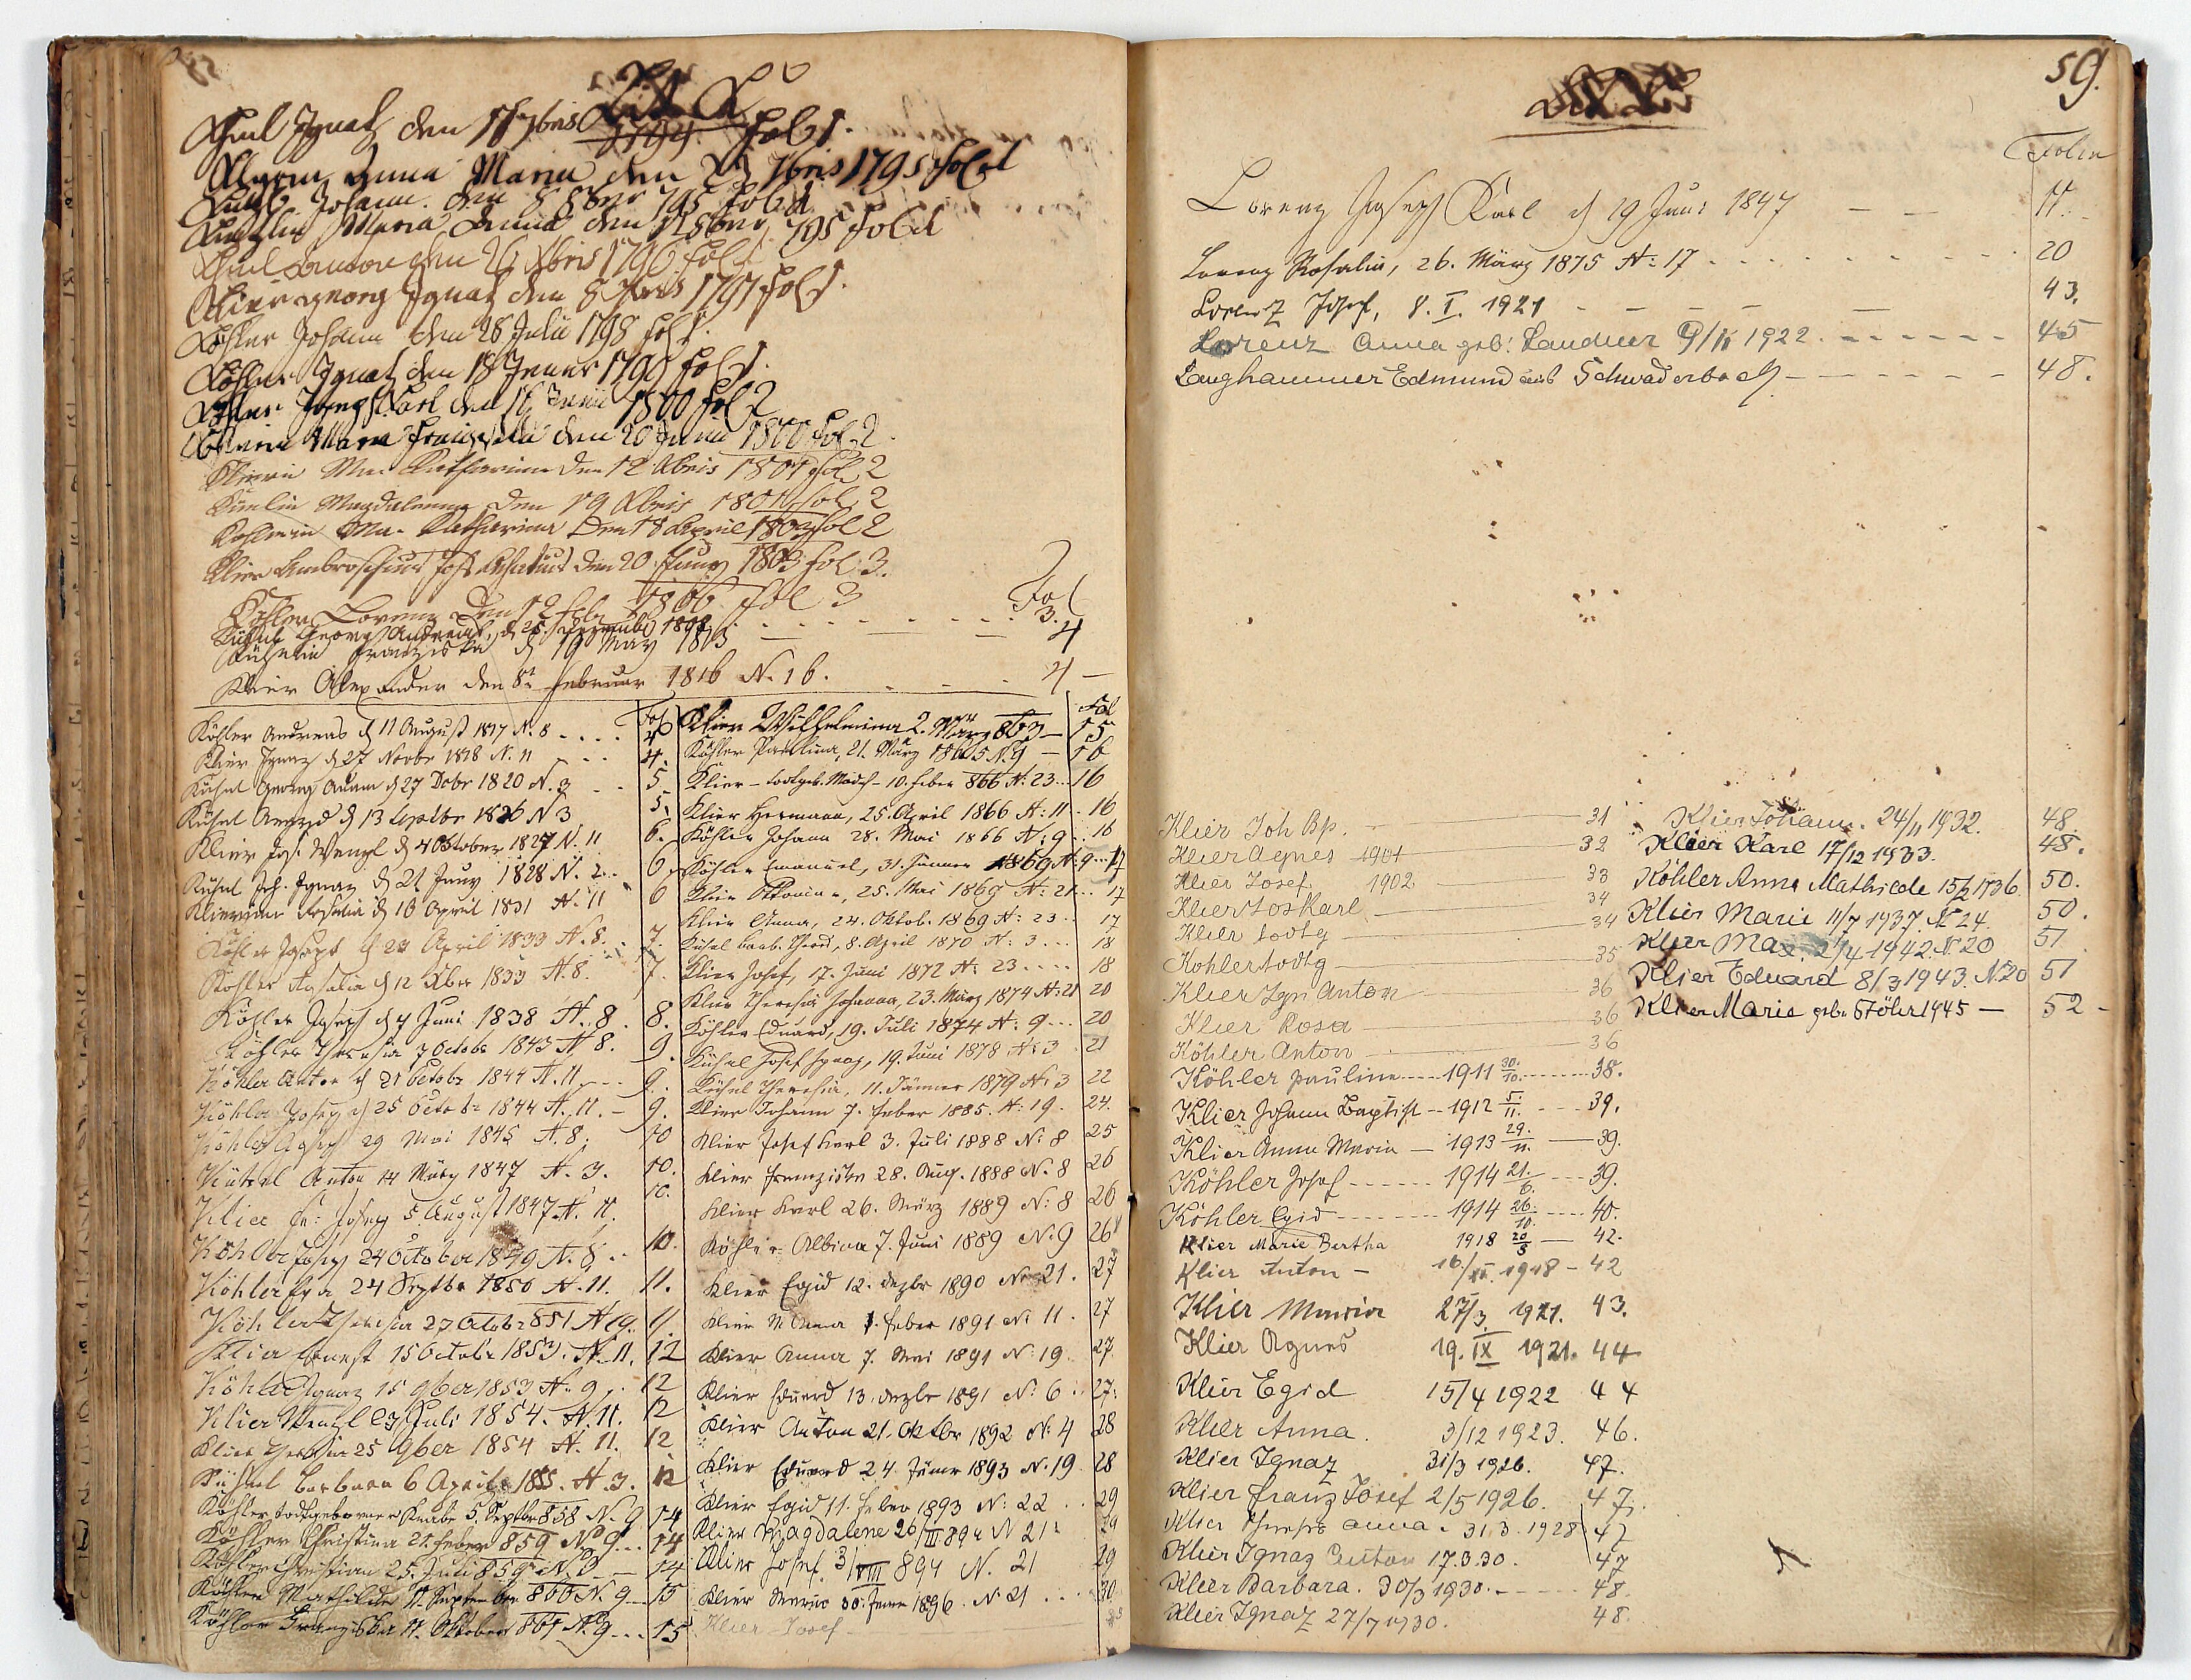 Lit K
Ignatz den 17bris 1794 Fol 1.
Anna Maria den 7bris 1795 Fol 1
Johann den 8 8bris 795 Fol 1
Maria Anna den 8bris 795 Fol 1
den 26 Xbris 1796 Fol 1
Klier georg Ignatz den 8 1797 Fol 1.
Köhler Johann den 28 Julii 1798 Fol 1.
Köhler Ignatz den 18 Jenner 1799 Fol 1.
Köhler Joseph Karl den 16 Junii 1800 Fol 2
Maria Franziska den 20 Junii 1800 Fol 2
Klierin Ma. Katharina den 12 Xbris 1801 Fol 2
Magdalena den 19 Xbris 1801 Fol 2
Köhlerin Ma. Katharina den 18 April 1802 Fol 2
Klier Ambrosius den 20 Juny 1803 Fol: 3.
Köhler Lorenz den 12 Febr 1806 Fol 3
Fol
Kühnl Georg Andreas, d 25. 3.
Franziska d 19 May 1813 4
Klier Alexander den 8t Februar 1816 N. 16. 4
Fol
Köhler Andreas d 11 August 1817 N. 8 4
Klier Ignaz d 27 Novbr 1818 N. 11 4.
Kühnl Georg Adam d 27 Dcbr 1820 N. 3 5
Kühnl d 13 Septbr 1826 N 3 5.
Klier Jos. Wenzl d 4 October 1827 N. 11 6.
Kühnl Joh. Ignaz d 21 Juny 1828 N. 2 6
Klierinn Rosalia d 16 April 1831 N. 11 6
Köhler Joseph d 24 April 1833 N. 8. 7.
Köhler Rosalia d 12 Xber 1833 N. 8. 7.
Köhler Joseph d 4 Juni 1838 N. 8 8.
Köhler Theresia 7 Octobr 1843 N 8. 9.
Köhler Anton d 21 Octobr 1844 N. 11 9.
Köhler Joseph d 25 Octobr 1844 N. 11. 9.
Köhler Joseph 29 Mai 1845 N. 8. 10
Kühnl Anton 14 März 1847 N. 3. 10.
Klier Fr: Joseph 5. August 1847 N. 11. 10.
Köhler Joseph 24 October 1849 N. 8. 10.
Köhler 24 Septbr 1850 N. 11. 11.
Köhler Theresia 27 Octobr 851 N 9. 11
Klier Ernest 15 Octobr 1853. N. 11. 12
Köhler Ignaz 15 9ber 1853 N. 9. 12
Klier Wenzl 23 Juli 1854. N. 11. 12
Klier Theresia 25 9ber 1854 N. 11. 12
Kühnl Barbara 6 April 1855. N. 3. 12
Köhler todtgeborner Knabe 5. Septbr 858 N. 9 14
Köhler Christina 21. Feber 859 No 9 14
Köhler Christian 25. Juli 859 No 9 14
Köhler Mathilde 11. September 860 N. 9 15
Köhler Franziska 11. Oktober 861 No 9 15
Fol
Klier Wilhelmina 2. März 863 15
Köhler Paulina, 21. März 1865 N. 9 16
Klier - todtgeb. Mädch - 10. Feber 866 N: 23 16
Klier Hermann, 25. April 1866 N: 11 16
Köhler Johann 28. Mai 1866 N: 9 16
Köhler Emanuel, 31. Jänner 1869 N. 9 17
Klier Viktorin, 25. Mai 1869 N: 21 17
Klier Anna, 24. Oktob. 1869 N: 23 17
Kühnl Barb. Theres, 8. April 1870 N: 3 18
Klier Josef, 17. Juni 1872 N: 23 18
Klier Theresia Johanna, 23. März 1874 N: 21 20
Köhler Eduard, 19. Juli 1874 N: 9 20
Kühnl Josef Ignaz, 19. Juni 1878 N: 3 21
Kühnl Theresia, 11. Jänner 1879 N: 3 22
Klier Johann 7. Feber 1885. N: 19. 24.
Klier Josef Karl 3. Juli 1888 N: 8 25
Klier Franziska 28. Aug. 1888 N. 8 26
Klier Karl 26. März 1889 N: 8 26
Köhler Albina 7. Juni 1889 N. 9 26
Klier Egid 12. Dezbr 1890 No 21. 27
Klier M Anna 1. Feber 1891 No 11. 27
Klier Anna 7. Mai 1891 N: 19. 27.
Klier Eduard 13. Dezbr 1891 N: 6 27.
Klier Anton 21. Oktbr 1892 N: 4 28
Klier Eduard 24. Jänner 1893 N. 19 28
Klier Egid 11. Feber 1893 N: 22 29
Klier Magdalene 26/III 894 N 21. 29
Klier Josef. 31/VIII 894 N. 21 29
Klier Maria 30. Jänner 1896. N 21 30
Klier Josef
59.
Lit L.
Folio
Lorenz Joseph Karl d 19 Juni 1847 11.
Lorenz Rosalia, 26. März 1875 N: 17 20
Lorenz Josef, 8. I. 1921 43.
Lorenz Anna geb. Landner 1922. 45
Langhammer Edmund aus Schwaderbach 48.
Klier Joh Bp. 31
Klier Agnes 1901 32
Klier Josef 1902 33
Klier Jos Karl 34
Klier todtg 34
Köhler todtg 35
Klier Ign Anton 36
Klier Rosa 36
Köhler Anton 36
Köhler Pauline 1911 30/10. 38.
Klier Johann Baptist 1912 5./11. 39.
Klier Anna Maria 1913 29./11. 39.
Köhler Josef 1914 21./6. 39.
Köhler Egid 1914 26./10. 40.
Klier Marie Bertha 1918 20/3 42.
Klier Anton 16/XI. 1918 42
Klier Maria 27/3. 1921. 43.
Klier Agnes 19. IX 1921. 44
Klier Egid 15/4 1922 44
Klier Anna. 3/12 1923. 46.
Klier Ignaz 31/3 1926. 47.
Klier Franz Josef 2/5 1926. 47.
Klier Theresia Anna. 31.3.1928 47
Klier Ignaz Anton 17.3.30. 47
Klier Barbara. 30/3 1930. 48.
Klier Ignaz 27/7 1930. 48.
Klier Johann. 24/11 1932. 48
Klier Karl 17/12 1933. 48.
Köhler Anna Mathilde 15/2 1936. 50.
Klier Marie 11/7 1937. N 24. 50.
Klier Max. 21/4 1942. N 20 51
Klier Eduard 8/3 1943. N. 20 51
Klier Marie geb. Stöhr 1945 52